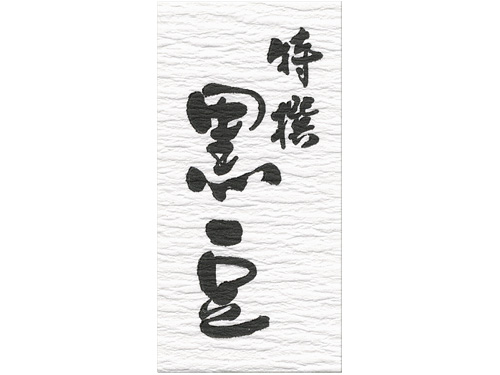 特撰
黒豆